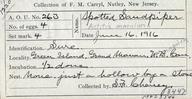 Collection of F. M. Carryl, Nutley, New Jersey.
A. O. U. No. 263 Spotted Sandpiper
No. of eggs, 4
Set mark 4 Date June 16, 1916
Identification, Sure
Locality, Green Island, Grand Manan, N. B. Can.
Incubation, 1/2 done
Nest, None, just a hollow by a stone
Collector,